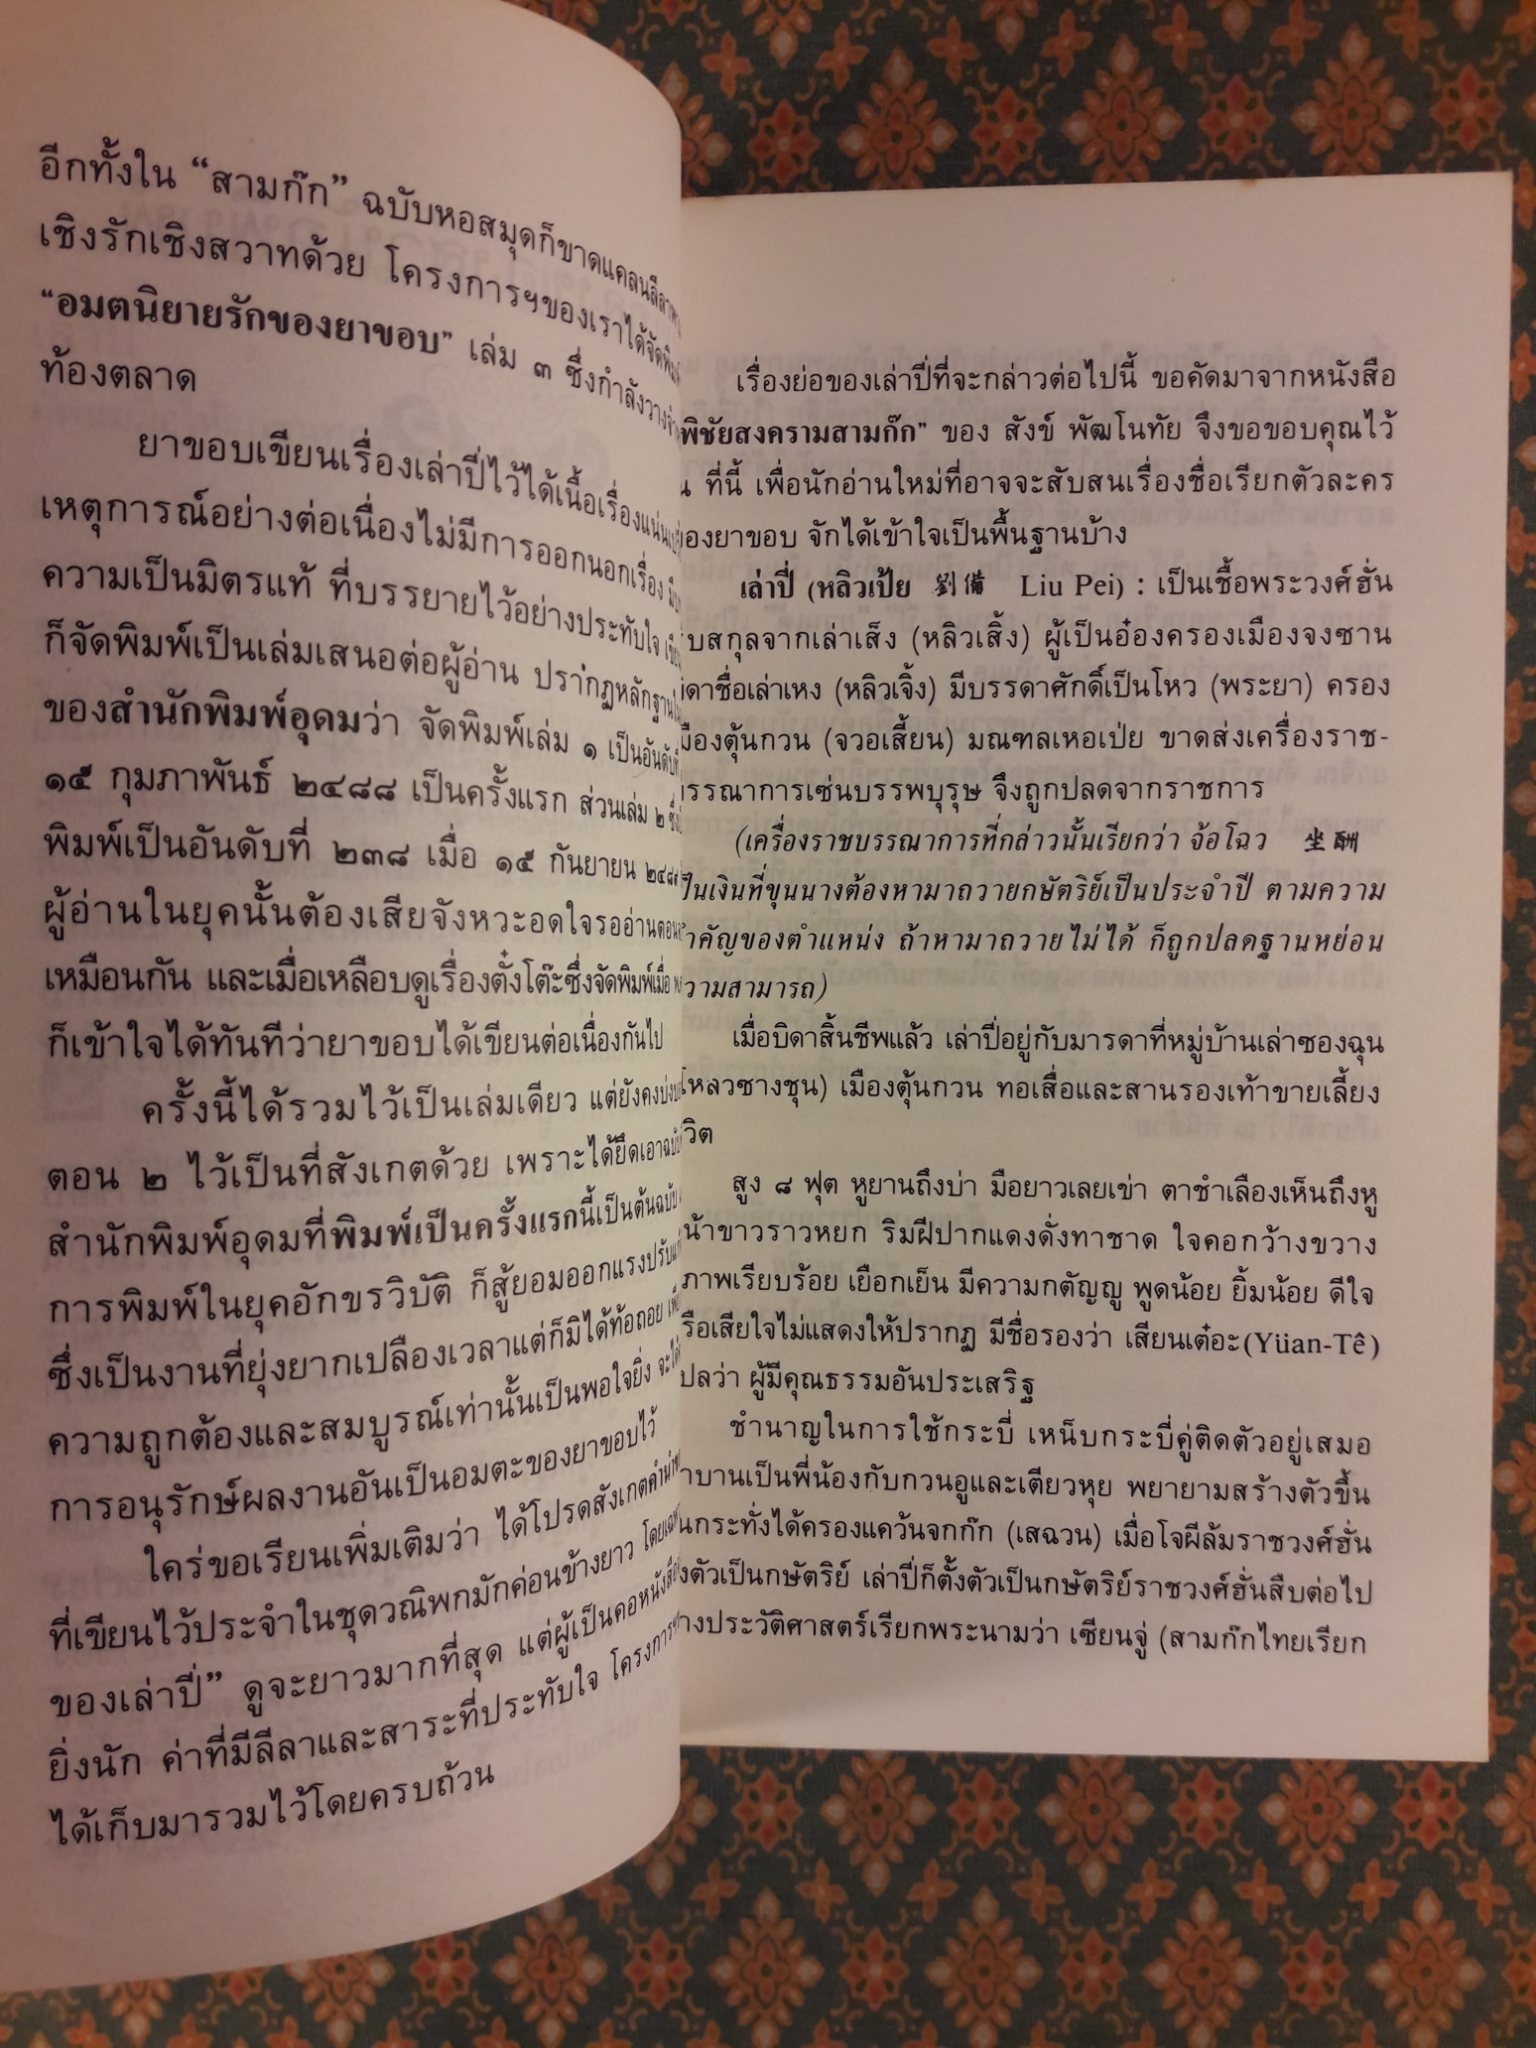 อีกทั้งใน “สามก๊ก” ฉบับหอสมุดก็ขาดแคลนลีลา
เชิงรักเชิงสวาทด้วย โครงการฯของเราได้จัดพิมพ์
“อมตนิยายรักของยาขอบ” เล่ม ๓ ซึ่งกำลังวาง
ท้องตลาด
ยาขอบเขียนเรื่องเล่าปี่ไว้ได้เนื้อเรื่องแน่น
เหตุการณ์อย่างต่อเนื่องไม่มีการออกนอกเรื่อง
ความเป็นมิตรแท้ ที่บรรยายไว้อย่างประทับใจ
ก็จัดพิมพ์เป็นเล่มเสนอต่อผู้อ่าน ปรากฏหลักฐาน
ของสำนักพิมพ์อุดมว่า จัดพิมพ์เล่ม ๑ เป็นอันดับที่
๑๕ กุมภาพันธ์ ๒๔๘๘ เป็นครั้งแรก ส่วนเล่ม ๒
พิมพ์เป็นอันดับที่ ๒๓๘ เมื่อ ๑๕ กันยายน
ผู้อ่านในยุคนั้นต้องเสียจังหวะอดใจรออ่านตอน
เหมือนกัน และเมื่อเหลือบดูเรื่องตั๋งโต๊ะซึ่งจัดพิมพ์เมื่อ
ก็เข้าใจได้ทันทีว่ายาขอบได้เขียนต่อเนื่องกันไป
ครั้งนี้ได้รวมไว้เป็นเล่มเดียว แต่ยังคง
ตอน ๒ ไว้เป็นที่สังเกตด้วย เพราะได้ยึดเอา
สำนักพิมพ์อุดมที่พิมพ์เป็นครั้งแรกนี้เป็นต้นฉบับ
การพิมพ์ในยุคอักขรวิบัติ ก็สู้ยอมออกแรงปรับ
ซึ่งเป็นงานที่ยุ่งยากเปลืองเวลาแต่ก็มิได้ท้อถอย
ความถูกต้องและสมบูรณ์เท่านั้นเป็นพอใจยิ่ง จะได้
การอนุรักษ์ผลงานอันเป็นอมตะของยาขอบไว้
ใคร่ขอเรียนเพิ่มเติมว่า ได้โปรดสังเกต
ที่เขียนไว้ประจำในชุดวณิพกมักค่อนข้างยาว
ของเล่าปี่” ดูจะยาวมากที่สุด แต่ผู้เป็นคอหนังสือ
ยิ่งนัก ค่าที่มีลีลาและสาระที่ประทับใจ โครงการ
ได้เก็บมารวมไว้โดยครบถ้วน
เรื่องย่อของเล่าปี่ที่จะกล่าวต่อไปนี้ ขอคัดมาจากหนังสือ
พิชัยสงครามสามก๊ก” ของ สังข์ พัฒโนทัย จึงขอขอบคุณไว้
ที่นี้ เพื่อนักอ่านใหม่ที่อาจจะสับสนเรื่องชื่อเรียกตัวละคร
ของยาขอบ จักได้เข้าใจเป็นพื้นฐานบ้าง
เล่าปี่ (หลิวเป้ย 劉備 Liu Pei) : เป็นเชื้อพระวงศ์ฮั่น
บสกุลจากเล่าเส็ง (หลิวเสิ้ง) ผู้เป็นอ๋องครองเมืองจงซาน
ดาชื่อเล่าเหง (หลิวเจิ้ง) มีบรรดาศักดิ์เป็นโหว (พระยา) ครอง
มืองตุ้นกวน (จวอเสี้ยน) มณฑลเหอเป่ย ขาดส่งเครื่องราช-
รรณาการเซ่นบรรพบุรุษ จึงถูกปลดจากราชการ
(เครื่องราชบรรณาการที่กล่าวนั้นเรียกว่า จ้อโฉว 坐酬
ป็นเงินที่ขุนนางต้องหามาถวายกษัตริย์เป็นประจำปี ตามความ
ำคัญของตำแหน่ง ถ้าหามาถวายไม่ได้ ก็ถูกปลดฐานหย่อน
วามสามารถ)
เมื่อบิดาสิ้นชีพแล้ว เล่าปี่อยู่กับมารดาที่หมู่บ้านเล่าซองฉุน
โหลวซางชุน) เมืองตุ้นกวน ทอเสื่อและสานรองเท้าขายเลี้ยง
วิต
สูง ๘ ฟุต หูยานถึงบ่า มือยาวเลยเข่า ตาชำเลืองเห็นถึงหู
น้าขาวราวหยก ริมฝีปากแดงดั่งทาชาด ใจคอกว้างขวาง
ภาพเรียบร้อย เยือกเย็น มีความกตัญญู พูดน้อย ยิ้มน้อย ดีใจ
รือเสียใจไม่แสดงให้ปรากฏ มีชื่อรองว่า เสียนเต๋อะ(Yüan-Tê)
ปลว่า ผู้มีคุณธรรมอันประเสริฐ
ชำนาญในการใช้กระบี่ เหน็บกระบี่คู่ติดตัวอยู่เสมอ
าบานเป็นพี่น้องกับกวนอูและเตียวหุย พยายามสร้างตัวขึ้น
นกระทั่งได้ครองแคว้นจกก๊ก (เสฉวน) เมื่อโจผีล้มราชวงศ์ฮั่น
งตัวเป็นกษัตริย์ เล่าปี่ก็ตั้งตัวเป็นกษัตริย์ราชวงศ์ฮั่นสืบต่อไป
างประวัติศาสตร์เรียกพระนามว่า เซียนจู่ (สามก๊กไทยเรียก